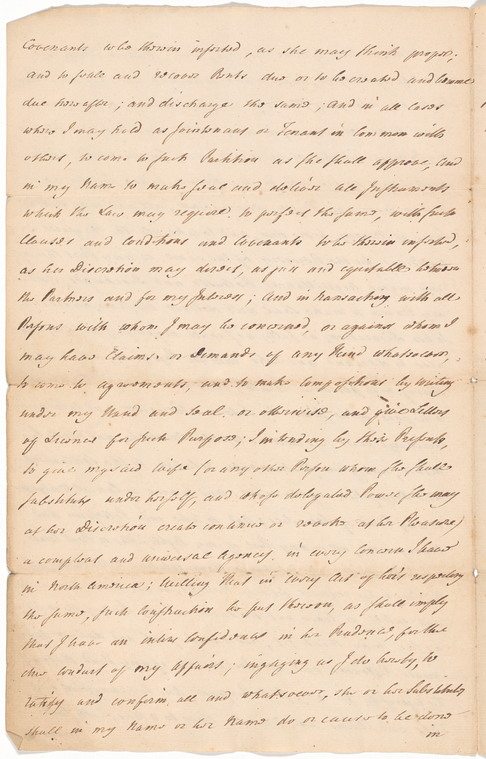 Covenants to be therein inserted, as she may think proper;
and to seale and recover Rents due or to be created and become
due hereafter; and discharge the same; And in all cases
where I may hold as Jointenant or Tenant in Common with
others, to come to such Partition as she shall approve, and
in my Name to make seal and deliver all Instruments
which the Law may require to perfect the same, with such
Clauses and Conditions and Covenants to be therein inserted,
as her Discretion may direct, as just and equitable between
the Partners and for my Interest; And in transacting with all
Persons with whom I may be concerned, or against whom I
may have Claims or Demands of any Kind whatsoever,
to come to agreements, and to make compositions by writing
under my Hand and Seal or otherwise, and give Letters
of Licence for such Purpose; I intending by these Presents,
to give my said wife (or any other Person whom she shall
substitute under herself, and whose delegated Power she may
at her Discretion create continue or revoke at her Pleasure)
a compleat and universal Agency in every Concern I have
in North America; Willing that in every Act of hers respecting
the same, such Construction be put thereon, as shall imply
that I have an intire confidence in her Prudence for the
due conduct of my affairs; ingaging as I do hereby, to
ratify and confirm all and whatsoever, she or her Substitutes
shall in my Name or her Name do or cause to be done
in